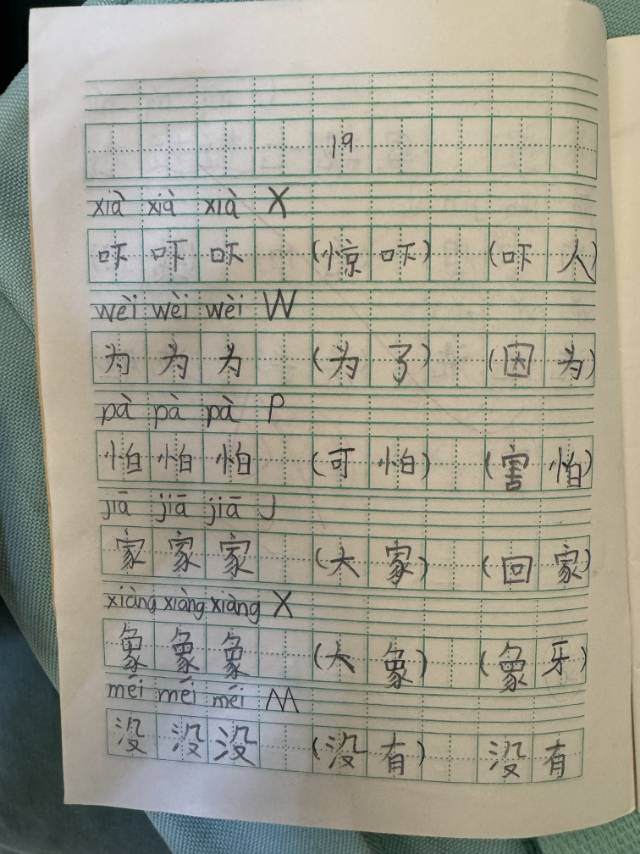 19
xià xià xià X
吓 吓 吓 (惊 吓) (吓 人)
wèi wèi wèi W
为 为 为 (为 了) (因 为)
pà pà pà P
怕 怕 怕 (可 怕) (害 怕)
jiā jiā jiā J
家 家 家 (大 家) (回 家)
xiàng xiàng xiàng X
象 象 象 (大 象) (象 牙)
méi méi méi M
没 没 没 (没 有) 没 有